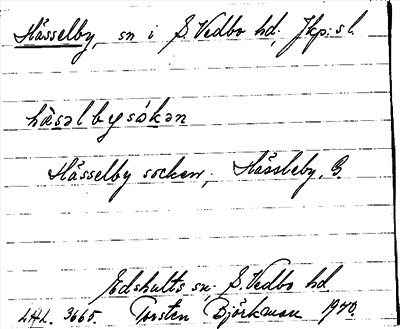 Hässelby, sn i S. Vedbo hd, Jkp:s l.
hàsəlbysókən
Hässelby socken; Hässleby. G.
Edshults sn. S. Vedbo hd
LAL. 3665. Torsten Björkman 1940.